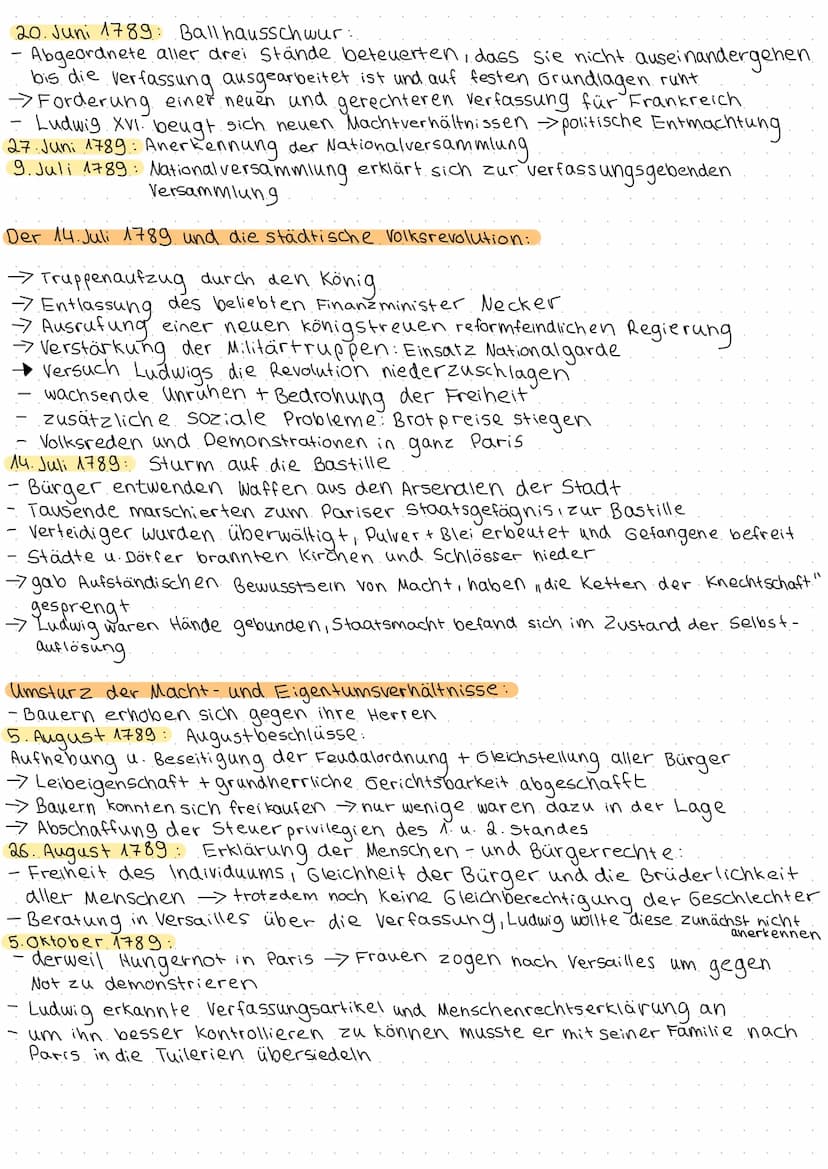 20. Juni 1789: Ballhausschwur:
- Abgeordnete aller drei Stände beteuerten, dass sie nicht auseinandergehen
bis die Verfassung ausgearbeitet ist und auf festen Grundlagen ruht
→ Forderung einer neuen und gerechteren Verfassung für Frankreich
- Ludwig XVI. beugt sich neuen Machtverhältnissen → politische Entmachtung
27. Juni 1789: Anerkennung der Nationalversammlung
9. Juli 1789: Nationalversammlung erklärt sich zur verfassungsgebenden
Versammlung
Der 14. Juli 1789 und die städtische Volksrevolution:
→ Truppenaufzug durch den König
→ Entlassung des beliebten Finanzminister Necker
→ Ausrufung einer neuen königstreuen reformfeindlichen Regierung
→ Verstärkung der Militärtruppen: Einsatz Nationalgarde
→ Versuch Ludwigs die Revolution niederzuschlagen
- wachsende Unruhen + Bedrohung der Freiheit
- zusätzliche soziale Probleme: Brotpreise stiegen
- Volksreden und Demonstrationen in ganz Paris
14. Juli 1789: Sturm auf die Bastille
- Bürger entwenden Waffen aus den Arsenalen der Stadt
- Tausende marschierten zum Pariser Staatsgefägnis, zur Bastille
- Verteidiger wurden überwältigt, Pulver + Blei erbeutet und Gefangene befreit
- Städte u. Dörfer brannten Kirchen und Schlösser nieder
→ gab Aufständischen Bewusstsein von Macht, haben „die Ketten der Knechtschaft"
gesprengt
→ Ludwig waren Hände gebunden, Staatsmacht befand sich im Zustand der Selbst-
auflösung
Umsturz der Macht- und Eigentumsverhältnisse:
- Bauern erhoben sich gegen ihre Herren
5. August 1789: Augustbeschlüsse:
Aufhebung u. Beseitigung der Feudalordnung + Gleichstellung aller Bürger
→ Leibeigenschaft + grundherrliche Gerichtsbarkeit abgeschafft
→ Bauern konnten sich freikaufen → nur wenige waren dazu in der Lage
→ Abschaffung der Steuerprivilegien des 1. u. 2. Standes
26. August 1789: Erklärung der Menschen- und Bürgerrechte:
- Freiheit des Individuums, Gleichheit der Bürger und die Brüderlichkeit
aller Menschen → trotzdem noch keine Gleichberechtigung der Geschlechter
- Beratung in Versailles über die Verfassung, Ludwig wollte diese zunächst nicht
anerkennen
5. Oktober 1789:
- derweil Hungernot in Paris → Frauen zogen nach Versailles um gegen
Not zu demonstrieren
- Ludwig erkannte Verfassungsartikel und Menschenrechtserklärung an
- um ihn besser kontrollieren zu können musste er mit seiner Familie nach
Paris in die Tuilerien übersiedeln